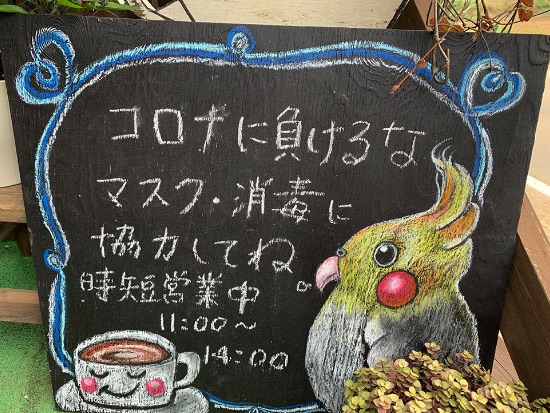 コロナに負けるな
マスク・消毒に
協力してね。
時短営業中
11:00〜
14:00